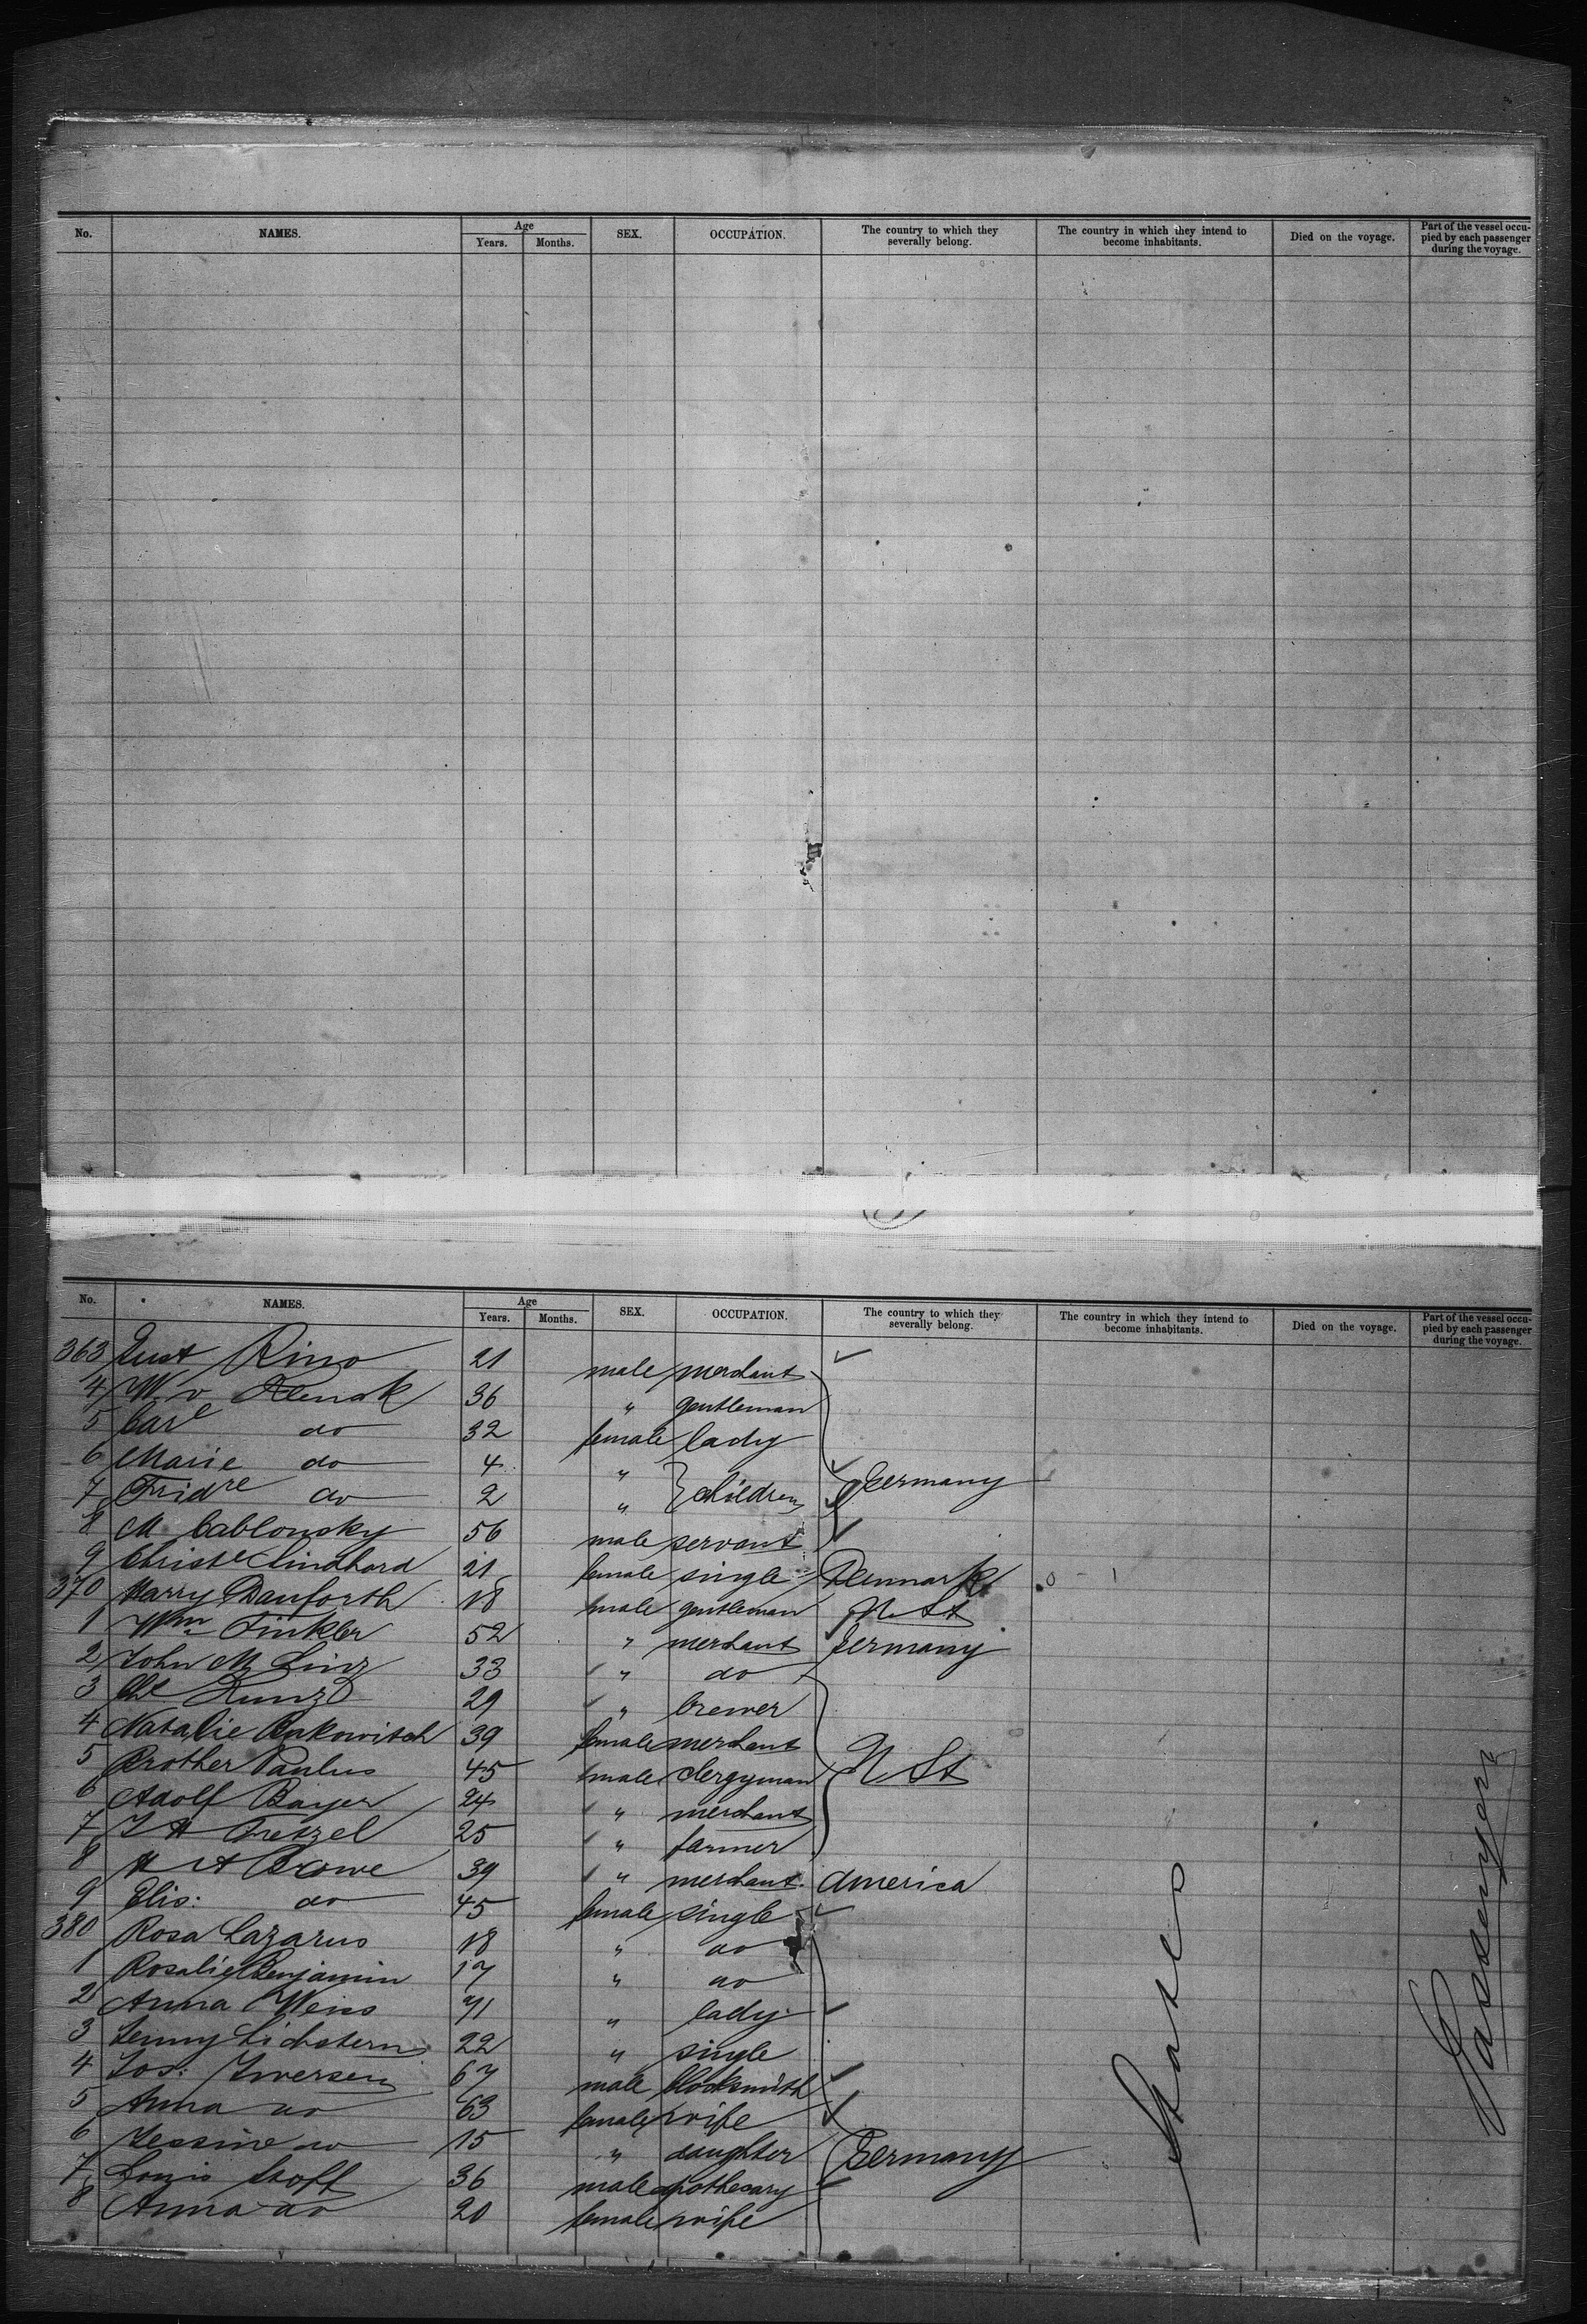 No. NAMES. Age Years. Months. SEX. OCCUPATION. The country to which they severally belong. The country in which they intend to become inhabitants. Died on the voyage. Part of the vessel occupied by each passenger during the voyage.
No. NAMES. Age Years. Months. SEX. OCCUPATION. The country to which they severally belong. The country in which they intend to become inhabitants. Died on the voyage. Part of the vessel occupied by each passenger during the voyage.
363 Gust Rino 21 male merchant
4 W. v 36 " gentleman
5 Carl do 32 female lady
6 Marie do 4 "
7 Fridre do 2 " } children Germany
8 M Cablonsky 56 male servant
9 Christe Lindhard 21 female single Denmark
370 Harry Danforth 18 male gentleman U St
1 Wm Finkler 52 " merchant Germany
2 John M Linz 33 " do
3 Kunz 29 " brewer
4 Natalie Bakowitch 39 female merchant
5 Brother Paulus 45 male clergyman U St
6 Adolf Bayer 24 " merchant
7 J H Fretzel 25 " farmer
8 H A Browe 39 " merchant America
9 Elis: do 45 female single
380 Rosa Lazarus 18 " do
1 Rosalie Benjamin 17 " do
2 Anna Weiss 71 " lady
3 Jenny Lichstern 22 " single
4 Jos: Iwersen 67 male blacksmith
5 Anna do 63 female wife
6 Jessine do 15 " daughter Germany
7 Louis Stoft 36 male apothecary
8 Anna do 20 female wife
States
Passengers